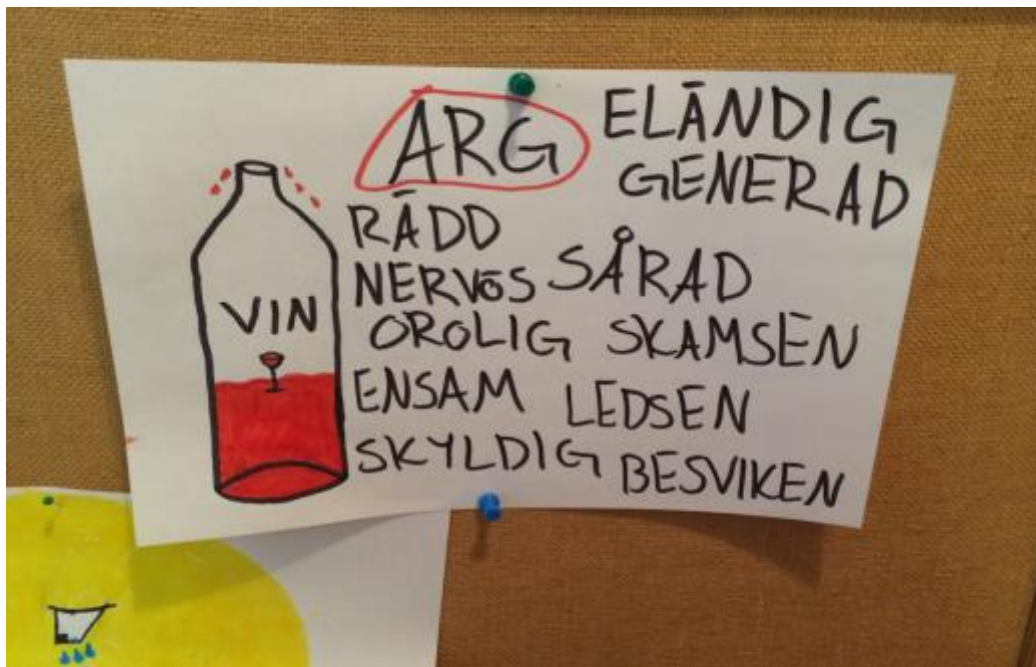 VIN
ARG
ELÄNDIG
GENERAD
RÄDD
NERVÖS
SÅRAD
OROLIG
SKAMSEN
ENSAM
LEDSEN
SKYLDIG
BESVIKEN